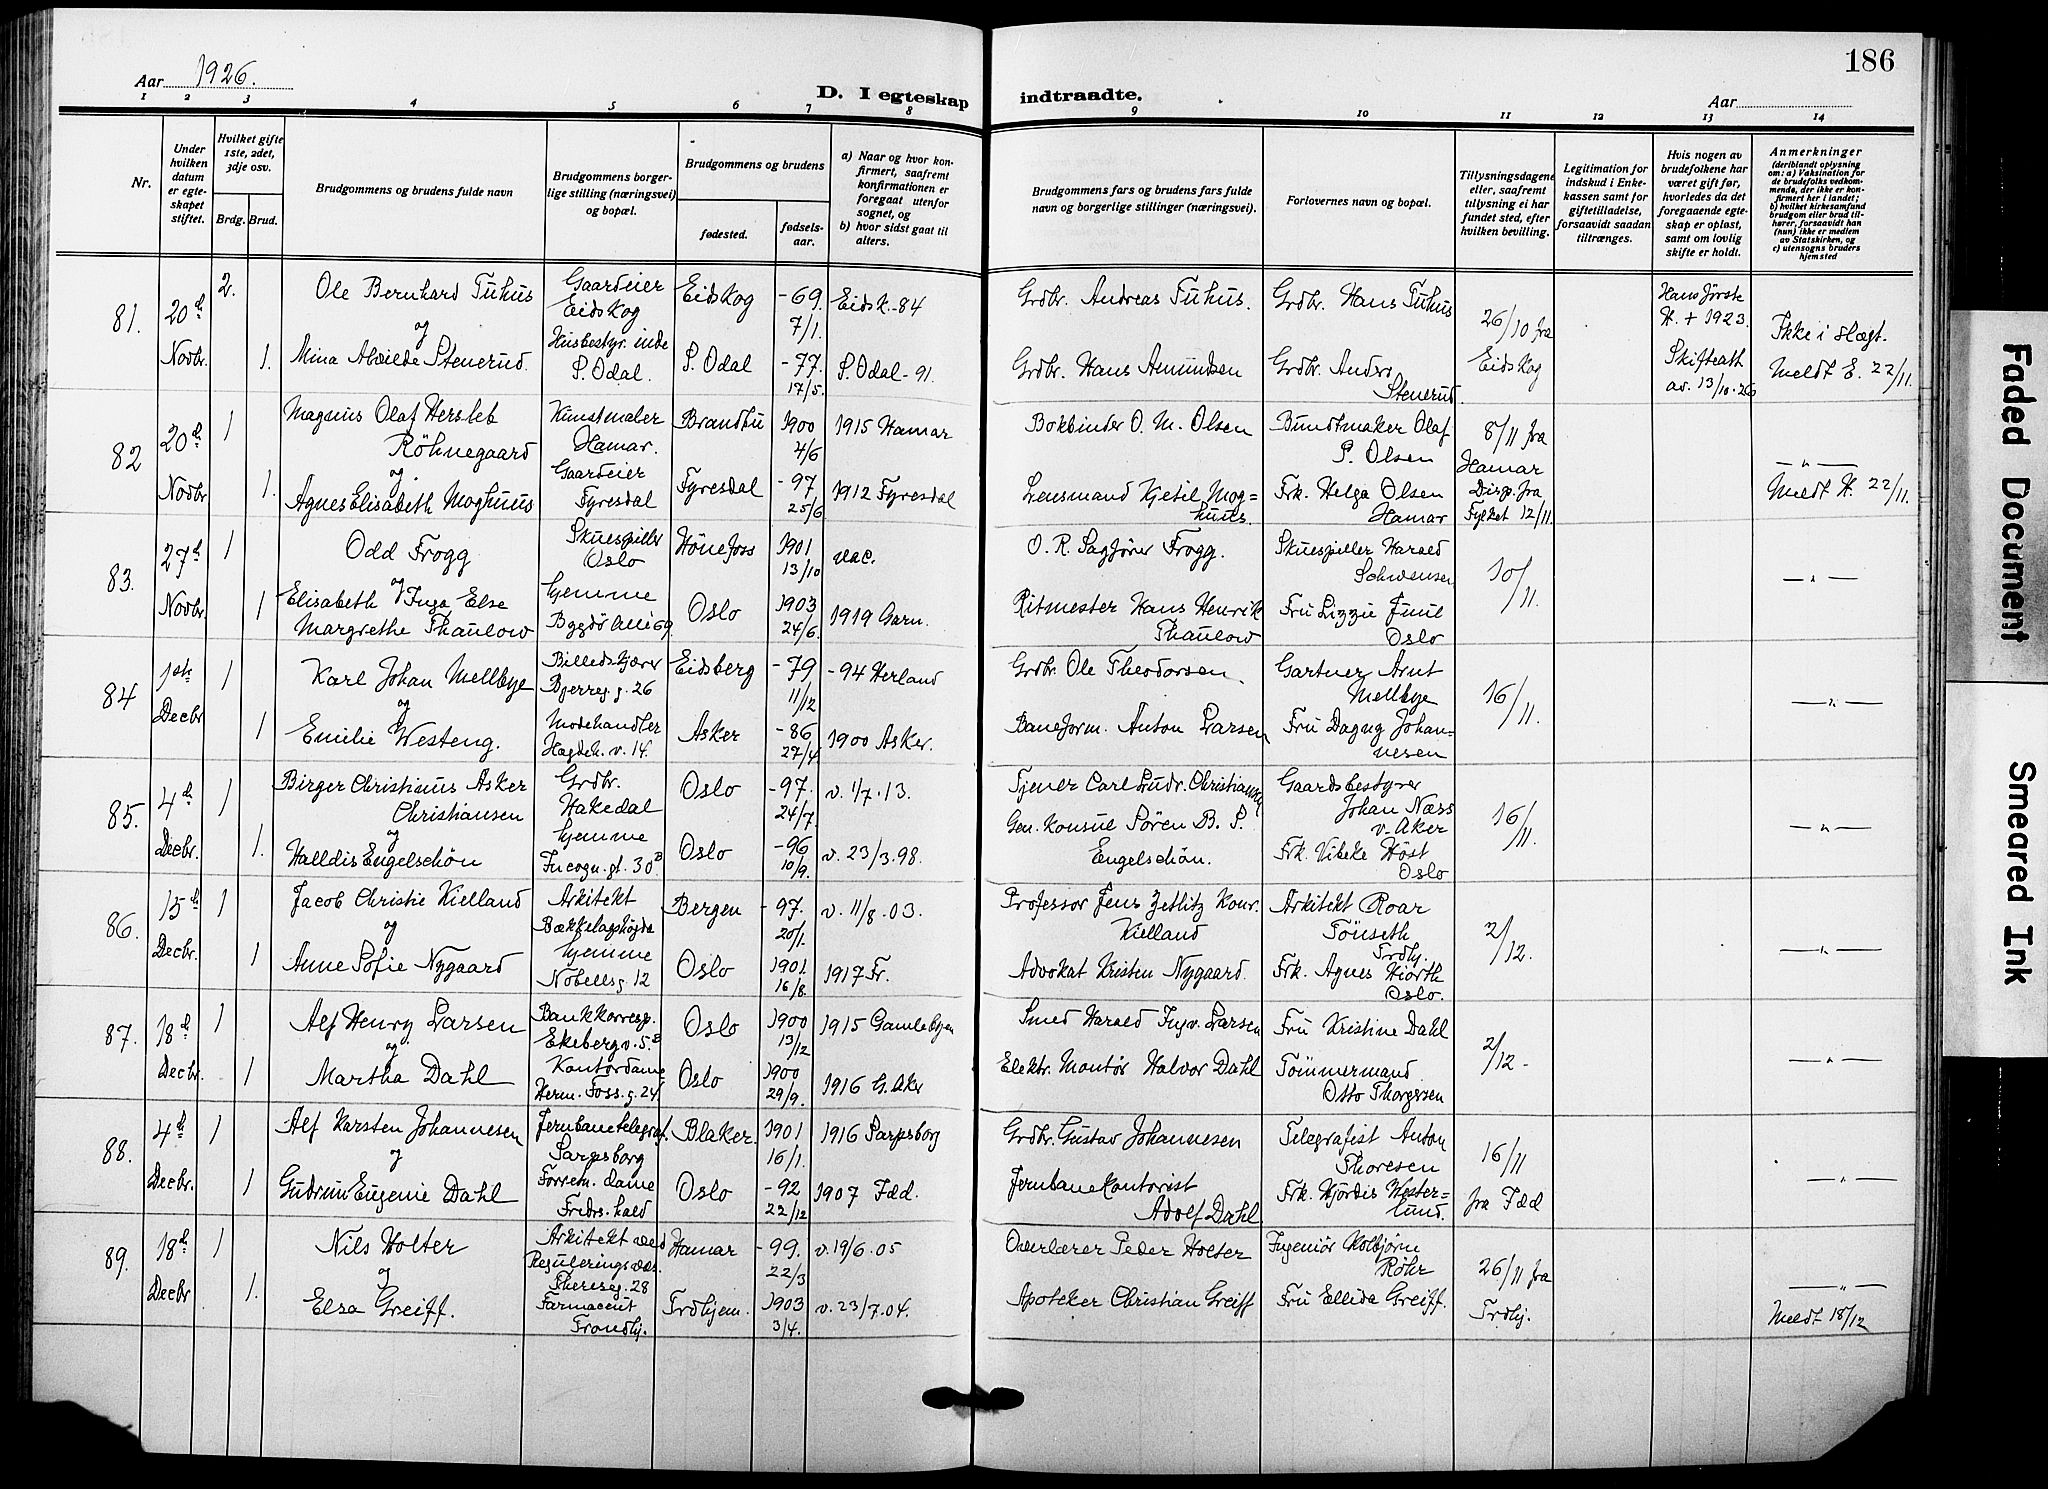 186
Aar 1926.
D. I egteskap indtraadte.
Aar
1 2 3 4 5 6 7 8 9 10 11 12 13 14
Nr.
Under hvilken datum er egteskapet stiftet.
Hvilket gifte 1ste, 2det, 3dje osv.
Brdg. Brud.
Brudgommens og brudens fulde navn
Brudgommens borgerlige stilling (næringsvei) og bopæl.
Brudgommens og brudens
fødested.
fødselsaar.
a) Naar og hvor konfirmert, saafremt konfirmationen er foregaat utenfor sognet, og
b) hvor sidst gaat til alters.
Brudgommens fars og brudens fars fulde navn og borgerlige stillinger (næringsvei).
Forlovernes navn og bopæl.
Tillysningsdagene eller, saafremt tillysning ei har fundet sted, efter hvilken bevilling.
Legitimation for indskud i Enkekassen samt for giftetilladelse, forsaavidt saadan tiltrænges.
Hvis nogen av brudefolkene har været gift før, hvorledes da det foregaaende egteskap er opløst, samt om lovlig skifte er holdt.
Anmerkninger
(deriblandt oplysning om: a) Vaksination for de brudefolks vedkommende, der ikke er konfirmert her i landet; b) hvilket kirkesamfund brudgom eller brud tilhører, forsaavidt han (hun) ikke er medlem av Statskirken, og c) utensogns bruders hjemsted
81. 20d 2. Ole Bernhard Tuhus Gaardeier Eidskog Eidskog -69. 7/1. Eidsk.-84 Grdbr. Andreas Tuhus. Grdbr. Hans Tuhus 26/10 fra Hans første H. + 1923. Ikke i slægt.
og
Novbr. 1. Mina Alvilde Stenerud. Husbestyr.inde S. Odal. S. Odal -77. 17/5. S. Odal-91. Grdbr. Hans Amundsen Grdbr. Anders Stenerud. Eidskog Skifteatt av. 13/10.26 Meldt E. 22/11.
82 20d 1 Magnus Olaf Hersleb Röhnegaard Kunstmaler Hamar. Brandbu 1900 4/6 1915 Hamar Bokbinder O. M. Olsen Bundtmaker Olaf P. Olsen 8/11 fra Hamar — " —
og
Novbr 1. Agnes Elisabeth Moghuus Gaardeier Fyresdal Fyresdal -97 25/6 1912 Fyresdal Lensmand Kjetil Moghuus. Frk. Helga Olsen Hamar Disp. fra Fylket 12/11. Meldt H. 22/11.
83. 27d 1 Odd Frogg Skuespiller Oslo Hönefoss 1901 13/10 vac. O. R. Sagfører Frogg. Skuespiller Harald Schwensen 10/11. — " —
og
Novbr. 1 Elisabeth Inga Else Margrethe Thaulow hjemme Bygdö Alle 69. Oslo 1903 24/6. 1919 Garn. Ritmester Hans Henrik Thaulow Fru Lizzie Juul Oslo
84 1ste 1 Karl Johan Mellbye Billedskjærer Bjerreg.g. 26 Eidsberg -79 11/12 -94 Herland Grdbr. Ole Theodorsen. Gartner Arnt Mellbye 16/11. — " —
og
Decbr 1 Emilie Westeng. Modehandler Hegdeh. v. 14. Asker -86 27/4 1900 Asker. Baneform. Anton Larsen Fru Dagny Johannesen
85. 4d 1 Birger Christinus Asker Christiansen Grdbr. Hakedal Oslo -97. 24/7. v. 1/7.13. Tjener Carl Ludv. Christiansen Gaardsbestyrer Johan Næss v. Aker 16/11. — " —
og
Decbr. 1. Halldis Engelschön hjemme Incogn. gt. 30B Oslo -96 10/9. v. 23/3.98. Gen. Konsul Sören B. S. Engelschön. Frk. Vibeke Höst Oslo
86. 15d 1 Jacob Christie Kielland Arkitekt Bækkelagshögda Bergen -97. 20/1. v. 11/8.03. Professor Jens Zetlitz Monr. Kielland Arkitekt Roar Tönseth Trdhj. 2/12. — " —
og
Decbr. 1 Anne Sofie Nygaard hjemme Nobelsg. 12 Oslo 1901. 16/8. 1917 Fr. Advokat Kristen Nygaard. Frk. Agnes Hiorth Oslo.
87. 18d 1 Alf Henry Larsen Bankkorresp. Ekeberg v. 5.B Oslo 1900 13/12 1915 Gamlebyen Smed Harald Ingv. Larsen Fru Kristine Dahl 2/12. — " —
og
Decbr. 1 Martha Dahl Kontordame Herm. Foss. g. 24 Oslo 1900 29/9. 1916 G. Aker Elektr. Montör Halvor Dahl Tömmermand Otto Thorgersen
88. 4d 1 Alf Karsten Johannesen Jernbanetelegraf. Sarpsborg Blaker 1901 16/1. 1916 Sarpsborg Grdbr. Gustav Johannesen Telegrafist Anton Thoresen 16/11 — " —
og
Decbr. 1 Gudrun Eugenie Dahl Forretn. dame Fredrs.hald Oslo -92 22/12 1907 Fred. Jernbanekontorist Adolf Dahl Frk. Hjördis Westerlund. fra Fred
89. 18d 1 Nils Holter Arkitekt ved Reguleringsvæs. Theresg. 28 Hamar -99. 22/3 v. 19/6.05 Overlærer Peder Holter Ingeniör Kolbjörn Röhr 26/11 fra — " —
og
Decbr 1. Elsa Greiff. Farmaceut Trondhj. Trdhjem. 1903 3/4. v. 23/7.04. Apoteker Christian Greiff Fru Ellida Greiff. Trdhj. Meldt 18/12
Faded Document
Smeared Ink